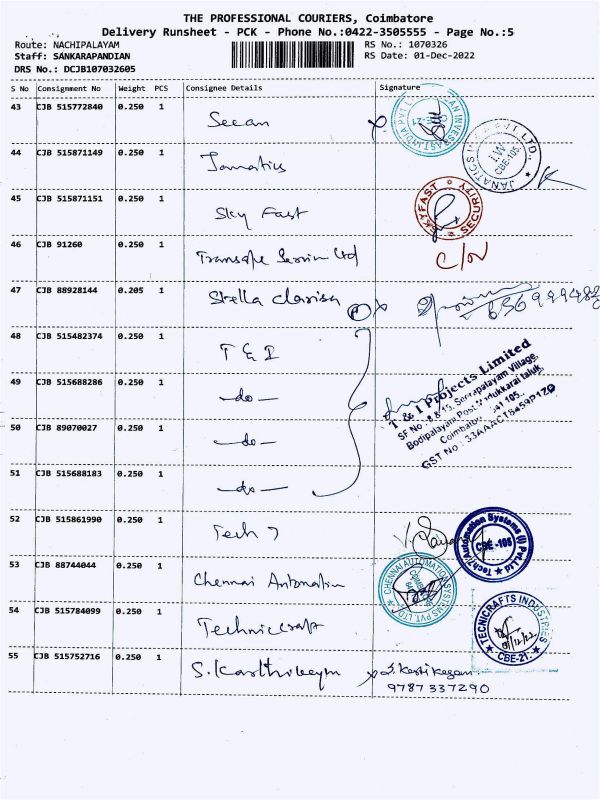 THE PROFESSIONAL COURIERS, Coimbatore
Delivery Runsheet - PCK - Phone No.:0422-3505555 - Page No.:5
Route: NACHIPALAYAM RS No.: 1070326
Staff: SANKARAPANDIAN RS Date: 01-Dec-2022
DRS No.: DCJB107032605
S No Consignment No Weight PCS Consignee Details Signature
43 CJB 515772840 0.250 1
Seean
44 CJB 515871149 0.250 1
Janatics
JANATICS PVT LTD., CBE-105
45 CJB 515871151 0.250 1
Sky Fast
SKYFAST SECURITY
46 CJB 91260 0.250 1
Transafe Servin Ltd
47 CJB 88928144 0.205 1
Stella clarisa
48 CJB 515482374 0.250 1
T & I
T & I Projects Limited
49 CJB 515688286 0.250 1
-do-
Coimbatore
50 CJB 89070027 0.250 1
-do-
51 CJB 515688183 0.250 1
-do-
52 CJB 515861990 0.250 1
Tech 7
Tech7Automation Systems (I) Pvt.Ltd CBE-105
53 CJB 88744044 0.250 1
Chennai Automation
CHENNAI AUTOMATION SYSTEMS PVT. LTD.
54 CJB 515784099 0.250 1
Techniccraft
TECNICRAFTS INDUSTRIES
CBE-21.
55 CJB 515752716 0.250 1
S. Karthikeyan
9787337290